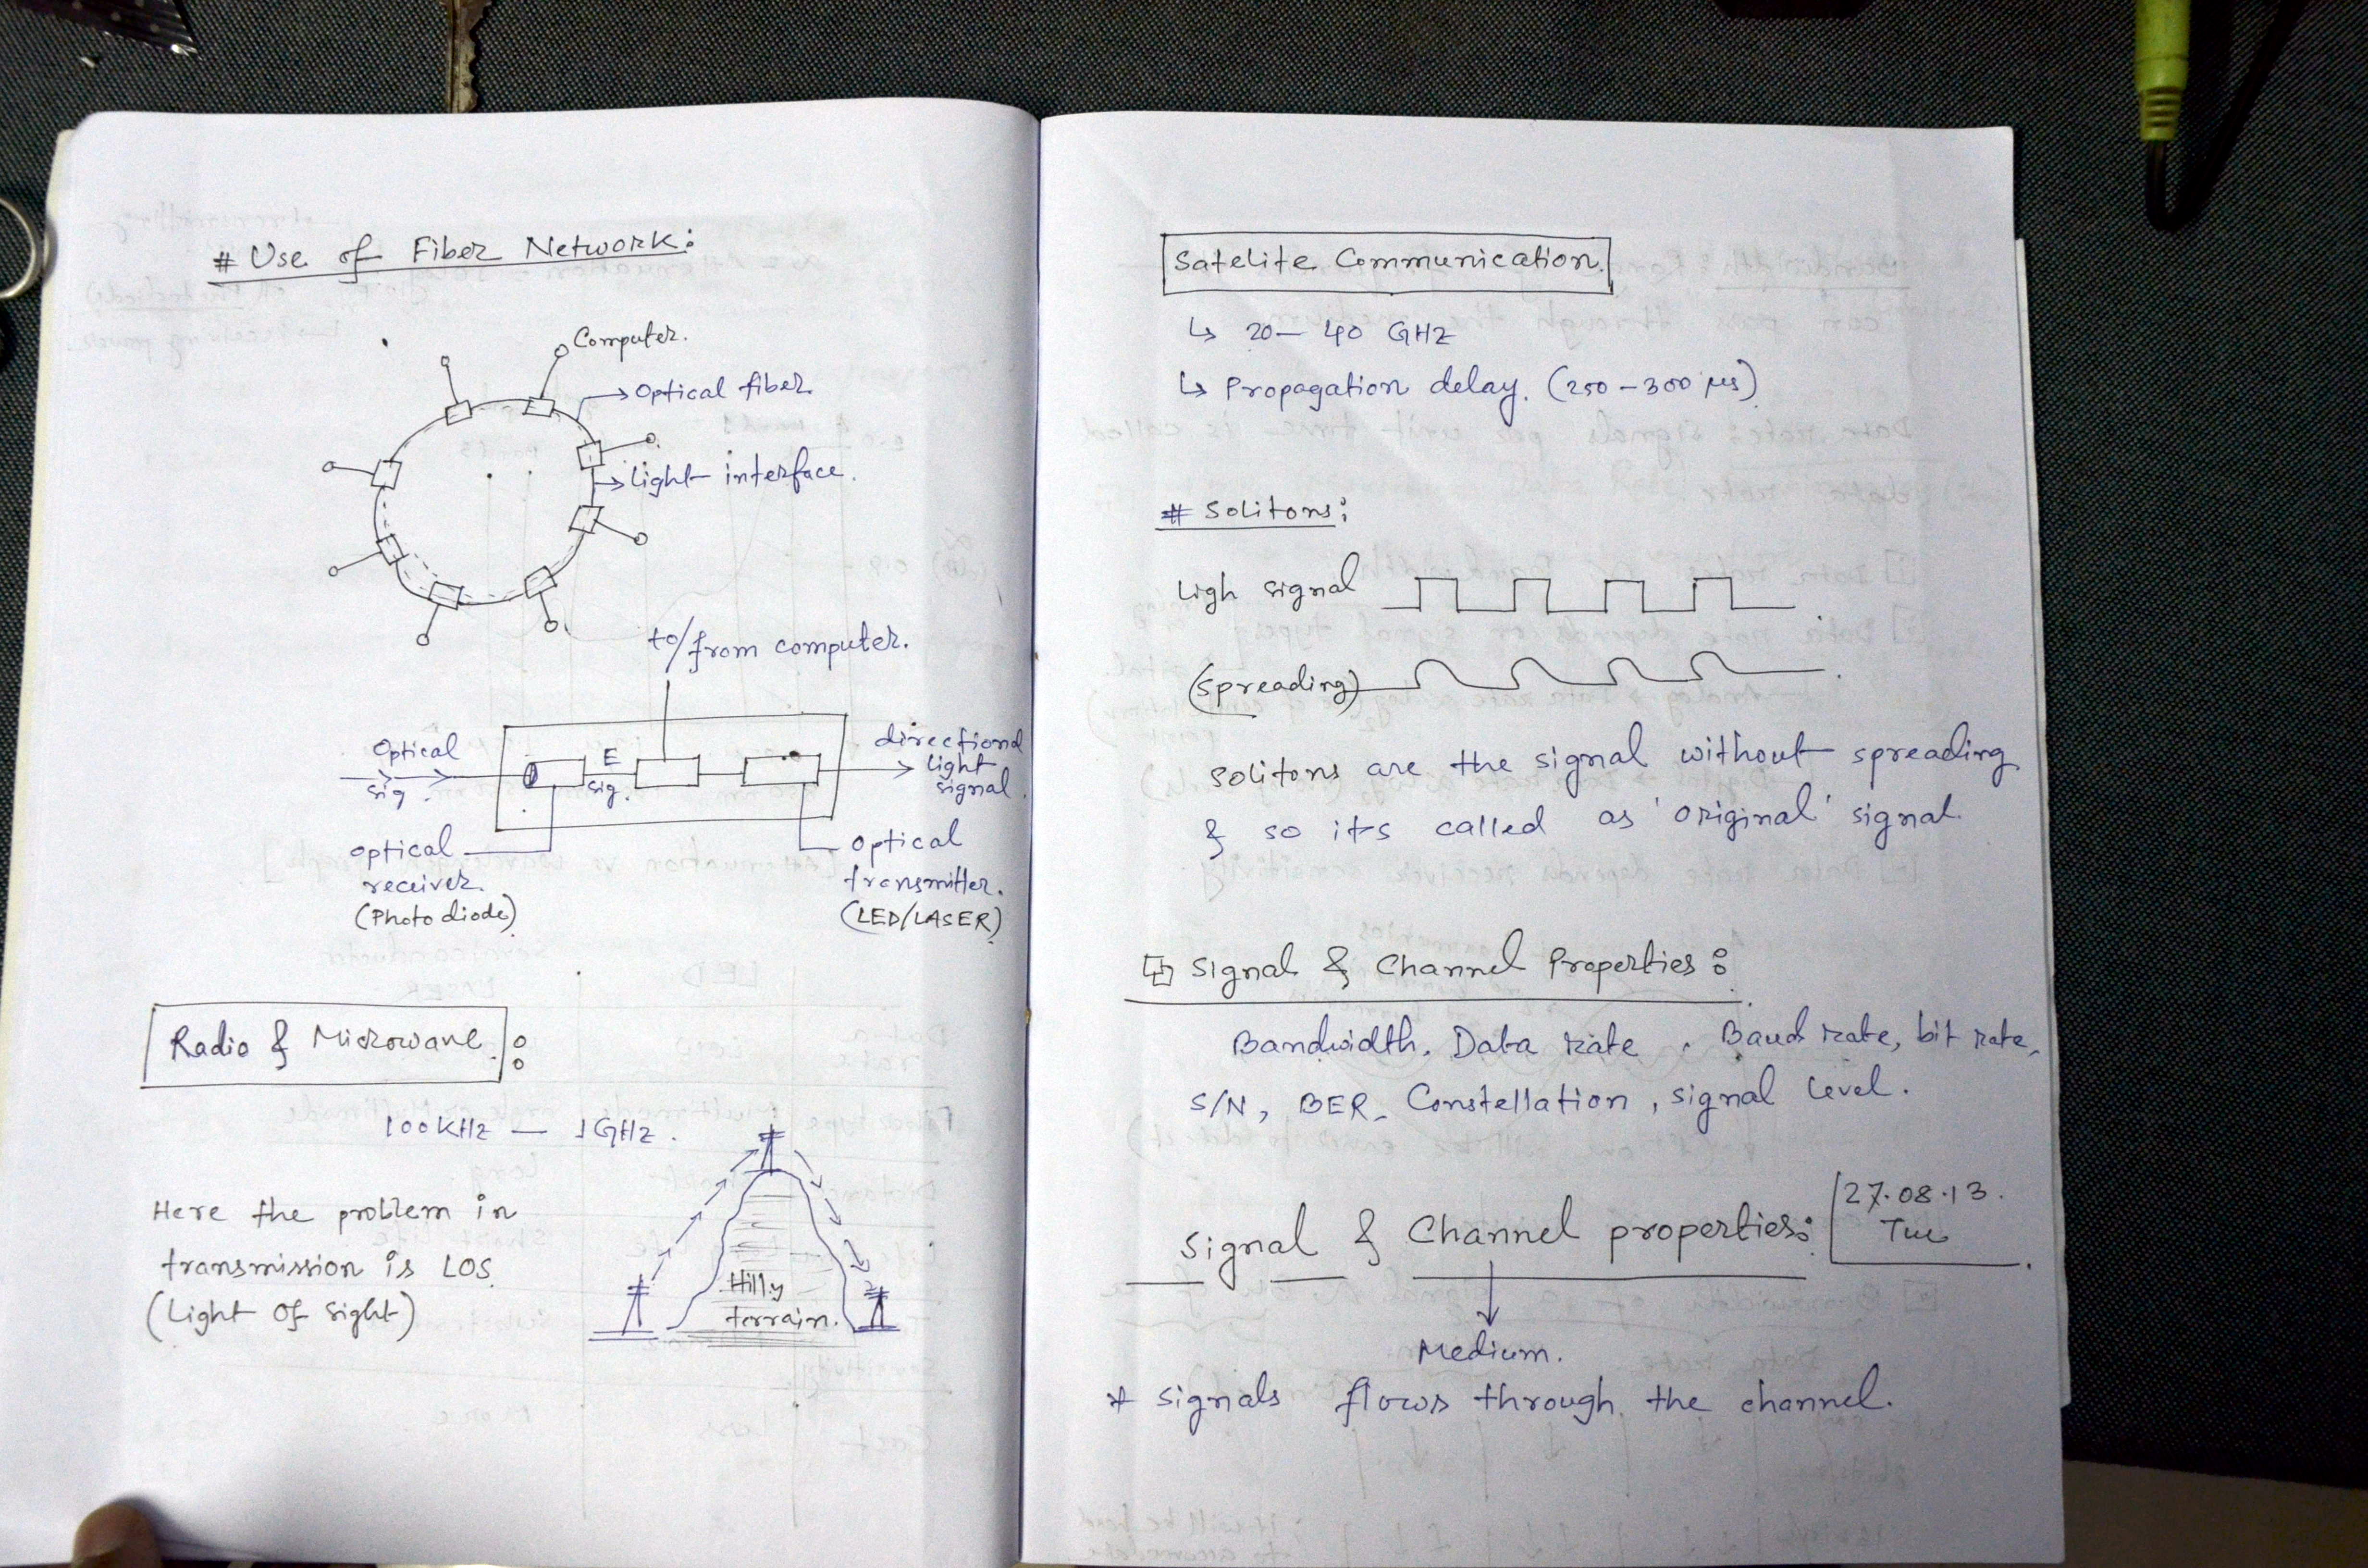 # Use of Fiber Network:
Computer.
Optical fiber
Light interface.
to/from computer.
Optical sig.
E sig.
directional light signal.
optical receiver. (Photo diode)
optical transmitter. (LED/LASER)
Radio & Microwave :
100KHz — 1GHz.
Here the problem in
transmission is LOS
(Light Of sight)
Hilly
terrain.
Satelite Communication.
↳ 20 — 40 GHz
↳ Propagation delay. (250 – 300 μs)
# Solitons:
Ligh signal
(spreading)
Solitons are the signal without spreading
& so its called as 'original' signal.
Signal & Channel Properties :
Bandwidth, Data rate, Baud rate, bit rate,
S/N, BER, Constellation, signal level.
27.08.13.
Tue
Signal & Channel properties:
Medium.
* Signals flows through the channel.